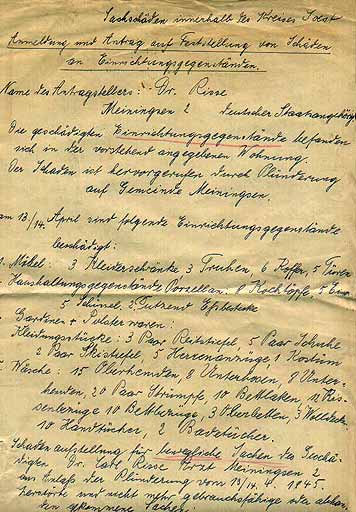 Sachschäden innerhalb des Kreises Soest
Anmeldung und Antrag auf Feststellung von Schäden
an Einrichtungsgegenständen.
Name des Antragstellers: Dr. Risse
Meiningsen 2 deutscher Staatsangehörig
Die geschädigten Einrichtungsgegenstände befanden
sich in der vorstehend angegebenen Wohnung.
Der Schaden ist hervorgerufen durch Plünderung
auf Gemeinde Meiningsen.
am 13/14. April sind folgende Einrichtungsgegenstände
beschädigt:
1. Möbel: 3 Kleiderschränke, 3 Truhen, 6 Koffer, 5 Türen
Haushaltungsgegenstände Porzellan, 8 Kochtöpfe, 5
5 3 Dutzend Eßbestecke
Gardinen + Polsterwaren:
Kleidungsstücke: 3 Paar Reitstiefel, 5 Paar Schuhe
2 Paar Skistiefel, 5 Herrenanzüge, 1 Kostüm
Wäsche: 15 Oberhemden, 8 Unterhosen, 8 Unter-
hemden, 20 Paar Strümpfe, 10 Bettlaken, 12 Kis-
senbezüge 10 Bettbezüge, 3 Oberbetten, 3 Wolldecken
10 Handtücher, 2 Badetücher.
Schadenaufstellung für bewegliche Sachen des Geschä-
digten Dr. Risse Arzt Meiningsen 2
aus Anlaß der Plünderung vom 13/14. 4. 1945
zerstörte und nicht mehr gebrauchsfähige oda abhan-
den gekommene Sachen